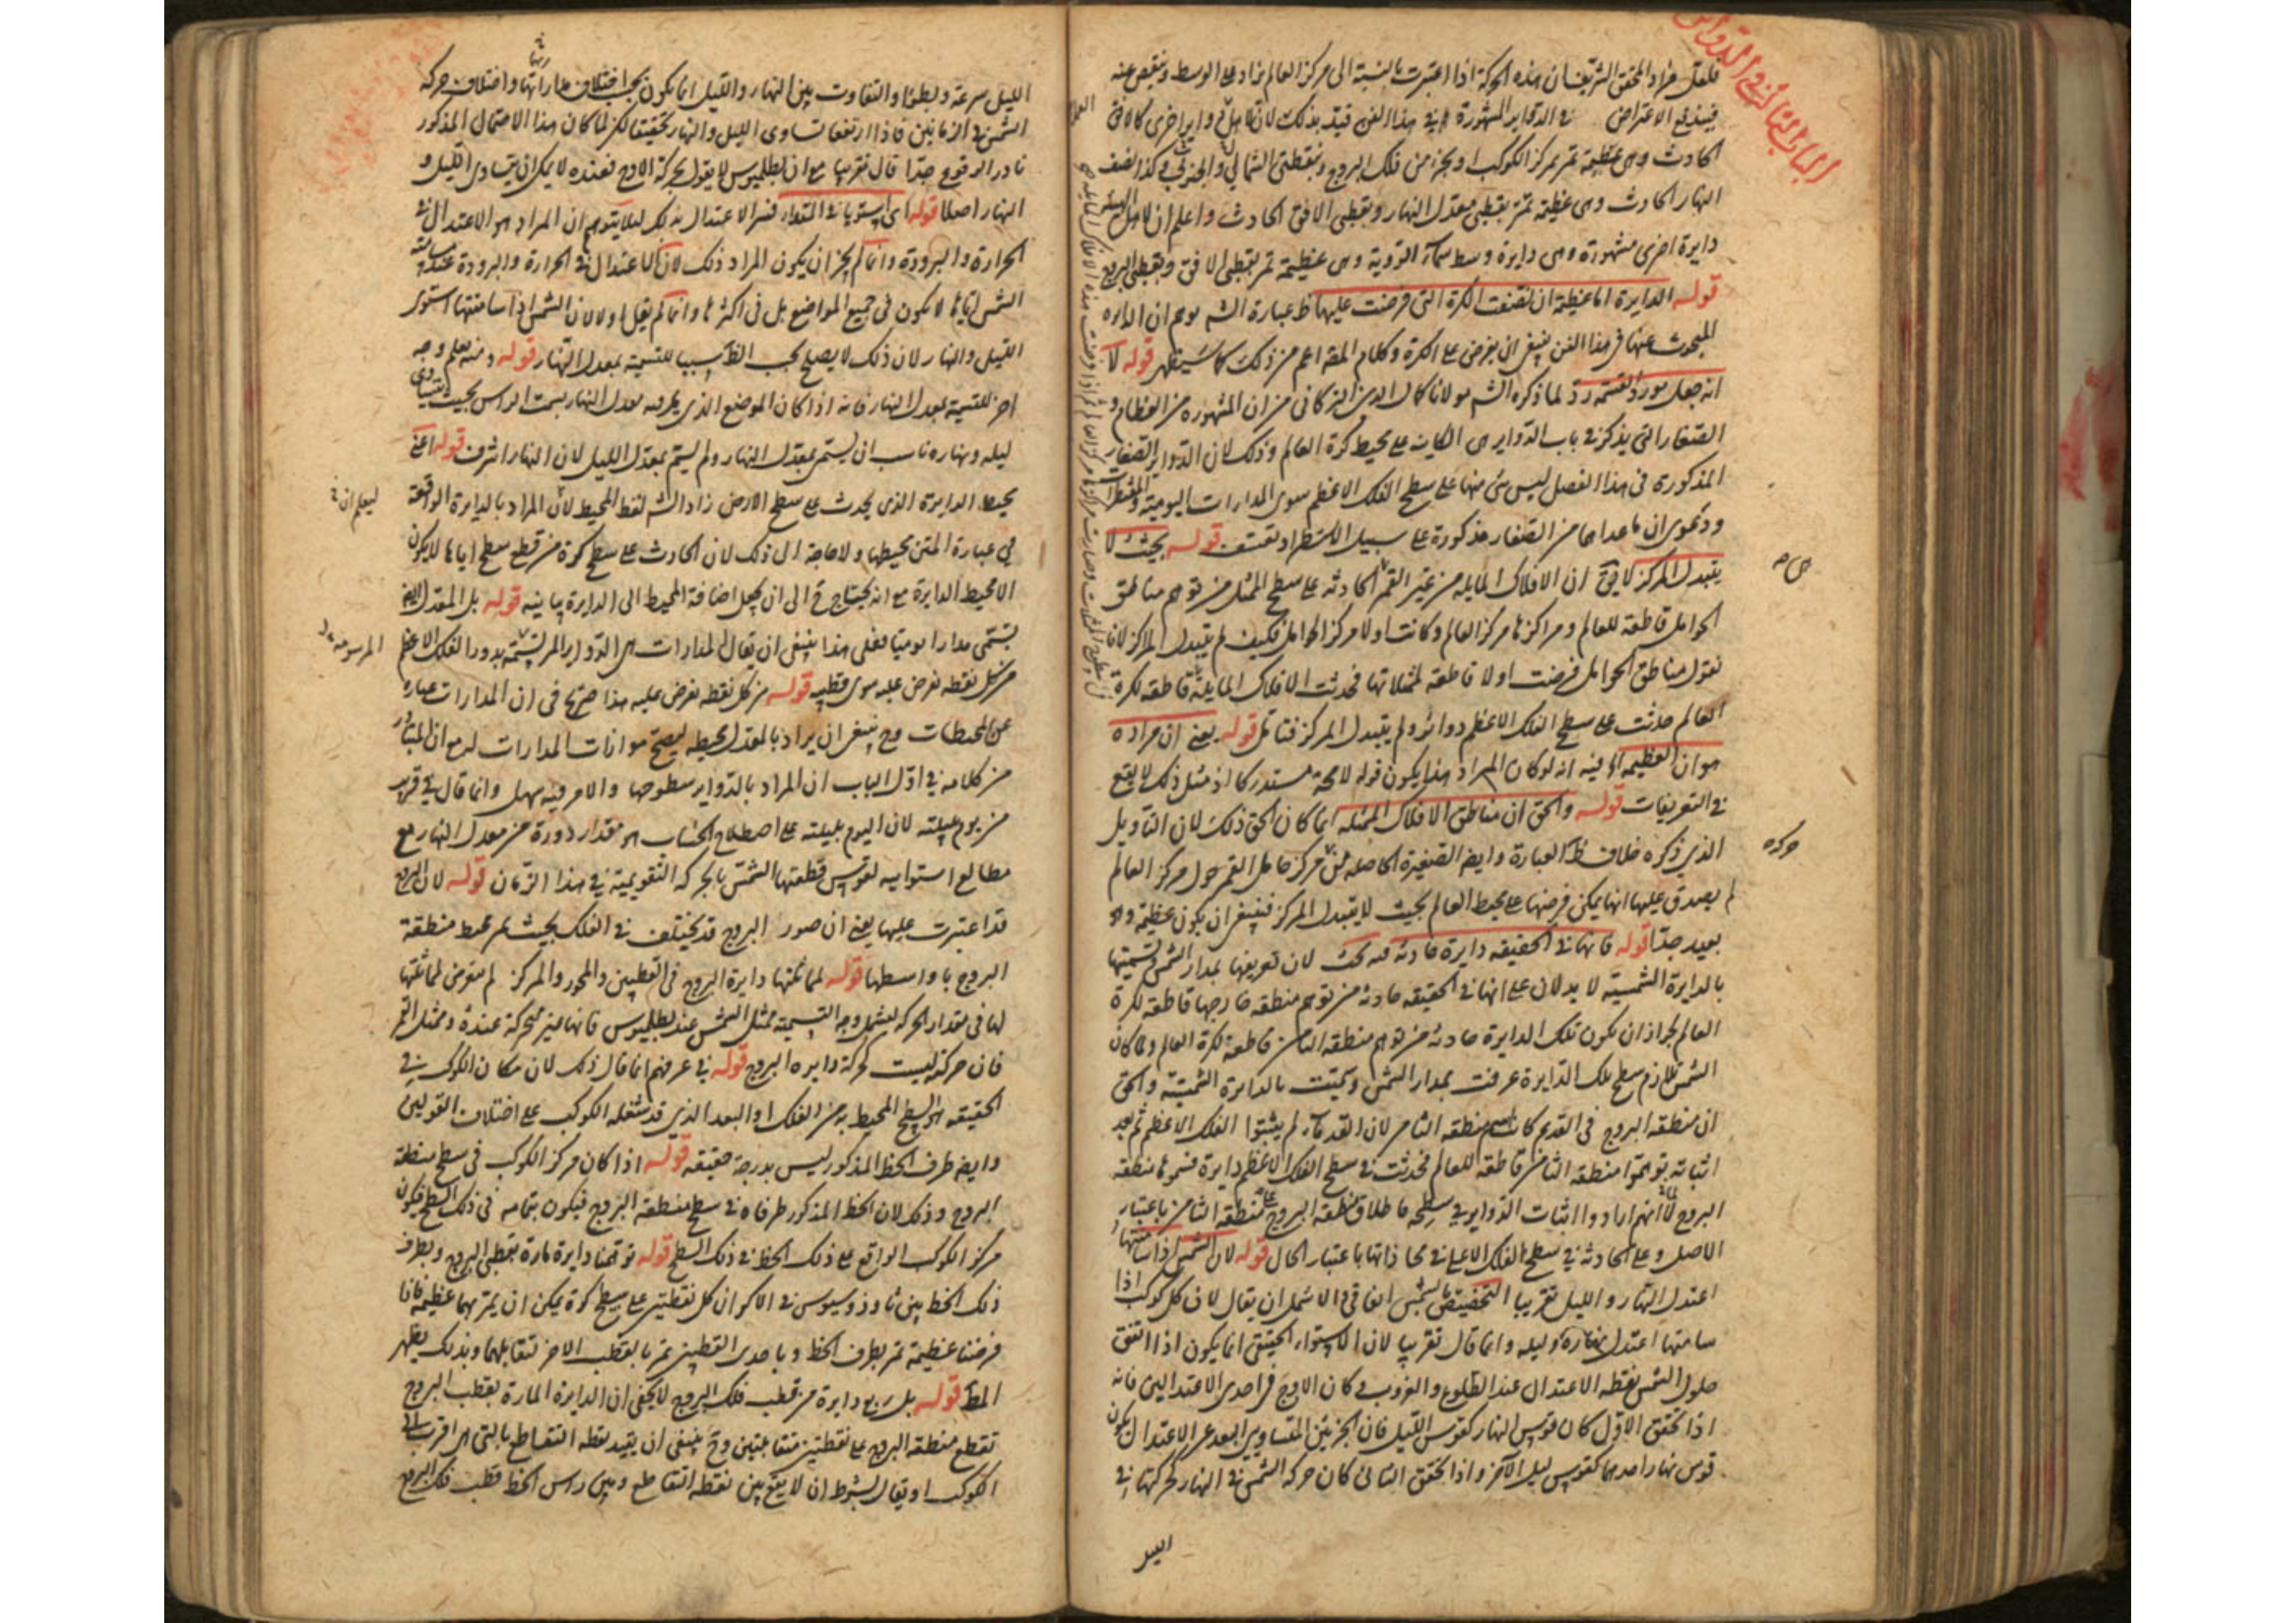 الباب الثاني في الدواير
فلعل مراد المحقق الشريف ان هذه الحركة اذا اعتبرت بالنسبة الى مركز العالم زاد على الوسط وينقص عنه
فيندفع الاعتراض في الدواير المشهورة في هذا الفن قيد بذلك لان دواير اخرى كالافق
الحادث وهى عظيمة تمر بمركز الكوكب او بجزء من فلك البروج وبنقطتى الشمال والجنوب وكذا نصف
النهار الحادث وهى عظيمة تمر بقطبى معدل النهار وبقطبى الافق الحادث واعلم ان
دايرة اخرى مشهورة وهى دايرة وسط سماء الرؤية وهى عظيمة تمر بقطبى الافق وبقطبى البروج
قوله الدايرة اما عظيمة ان نصفت الكرة التى فرضت عليها ظ عبارة الشم يوهم ان الدايره
المبحوث عنها فى هذا الفن ينبغى ان يفرض على الكرة وكلام المصه اعم من ذلك كما سيظهر قوله لا
انه جعل مورد القسمة رد لما ذكره الشم مولانا كمال الدين التركمانى من ان المشهوره من العظام و
الصغار التى يذكر فى باب الدواير هى الكاينه على محيط كرة العالم وذلك لان الدواير الصغار
المذكورة فى هذا الفصل ليس شئ منها على سطح الفلك الاعظم سوى المدارات اليومية والمقنطرات
ودعوى ان ما عداهما من الصغار مذكورة على سبيل الاستطراد تعسف قوله بحيث لا
يتبدل المركز لا فى ان الافلاك المايله من غير القمر الحادثه على سطح الممثل من توهم مناطق
الحوامل قاطعة للعالم ومراكزها مركز العالم وكانت اولا مركز الحوامل فكيف لم يتبدل المركز لانا
نقول مناطق الحوامل فرضت اولا قاطعة لممثلاتها فحدثت الافلاك المايلة قاطعه لكرة
العالم حدثت على سطح الفلك الاعظم دوائر ولم يتبدل المركز فتامل قوله يعنى ان مراده
هو ان العظيمة اه فيه انه لو كان المراد هذا يكون قوله لامحة مستدركا اذ مثل ذلك لا يقع
فى التعريفات قوله والحق ان مناطق الافلاك الممثله انما كان الحق ذلك لان التاويل
الذى ذكره خلاف ظ العبارة وايضه الصغيرة الحاصله من مركز حامل القمر حول مركز العالم
لم يصدق عليها انها يمكن فرضها على محيط العالم بحيث لا يتبدل المركز فينبغى ان يكون عظيمة وهو
بعيد جدا قوله فانها فى الحقيقه دايرة حادثه فيه بحث لان تعريفها بمدار الشمس وتسميتها
بالدايرة الشمسية لا يدلان على انها فى الحقيقه حادثه من توهم منطقه خارجها قاطعه لكرة
العالم لجواز ان يكون تلك الدايرة حادثه من توهم منطقه الثامن قاطعه لكرة العالم ولما كان
الشمس تلازم سطح تلك الدايرة عرفت بمدار الشمس وسميت بالدايرة الشمسية والحق
ان منطقه البروج فى القديم كان اسم منطقه الثامن لان القدماء لم يثبتوا الفلك الاعظم ثم بعد
اثباته توهموا منطقه الثامن قاطعه للعالم فحدثت فى سطح الفلك الاعظم دايرة فسموها منطقه
البروج لما انهم ارادوا اثبات الدواير فى سطحه فاطلاق منطقه البروج على منطقه الثامن باعتبار
الاصل وعلى الحادثه فى سطح الفلك الاعلى فى محاذاتها باعتبار الحال قوله لان الشمس اذا سامتتها
اعتدل النهار والليل تقريبا التخصيص بالشمس اتفاقى الاشمل ان يقال لان كل كوكب اذا
سامتها اعتدل نهاره وليله وانما قال تقريبا لان الاستواء الحقيقى انما يكون اذا اتفق
حلول الشمس نقطه الاعتدال عند الطلوع والغروب وكان الاوج فى احدى الاعتدالين فانه
اذا تحقق الاول كان قوس النهار كقوس الليل فان الجزئين المتساويى البعد عن الاعتدال يكون
قوس نهار احدهما كقوس ليل الآخر واذا تحقق الثانى كان حركة الشمس فى النهار كحركتها فى
الليل
الليل سرعة وبطئا والتفاوت بين النهار والليل انما يكون بحسب اختلاف مداراتها واختلاف حركه
الشمس فى الزمانين فاذا ارتفعا تساوى الليل والنهار حقيقتا لكن لما كان هذا الاحتمال المذكور
نادر الوقوع جدا قال تقريبا مع ان بطلميوس لا يقول بحركة الاوج فعنده لا يمكن ان يتساوى الليل و
النهار اصلا قوله اى استويا فى المقدار فسر الاعتدال بذلك لئلا يتوهم ان المراد هو الاعتدال فى
الحرارة والبرودة وانما لم يجز ان يكون المراد ذلك لان الاعتدال فى الحرارة والبرودة عند مسامتة
الشمس اياها لا يكون فى جميع المواضع بل فى اكثرها وانما لم يقل اولا لان الشمس اذا سامتتها استوى
الليل والنهار لان ذلك لا يصلح بحسب الظ سببا للتسمية بمعدل النهار قوله ومنه يعلم وجه
اخر للتسمية بمعدل النهار فانه اذا كان الموضع الذى يمر به معدل النهار بسمت الراس بحيث يتساوى
ليله ونهاره ناسب ان يسمى بمعدل النهار ولم يسم بمعدل الليل لان النهار اشرف قوله اعنى
محيط الدايرة الذى يحدث على سطح الارض زاد الشم لفظ المحيط لان المراد بالدايرة الواقعة
فى عبارة المتن محيطها ولا حاجة الى ذلك لان الحادث على سطح كرة من قطع سطح اياها لا يكون
الا محيط الدايرة مع انه يحتاج ح الى ان يجعل اضافة المحيط الى الدايرة بيانيه قوله بل المعدل ايضه
تسمى مدارا يوميا فعلى هذا ينبغى ان يقال المدارات هى الدواير المرتسمة بدور الفلك الاعظم
من كل نقطه تفرض عليه سوى قطبيه قوله من كل نقطه تفرض عليه هذا صريح فى ان المدارات عبارة
عن المحيطات وح ينبغى ان يراد بالمعدل محيطه ليصح موازات المدارات له مع ان المتبادر
من كلامه فى اول الباب ان المراد بالدواير سطوحها والامر فيه سهل وانما قال فى قريب
من يوم بليلته لان اليوم بليلته على اصطلاح الحساب هو مقدار دورة من معدل النهار مع
مطالع استوايه لقوس قطعتها الشمس بالحركه التقويمية فى هذا الزمان قوله لان البروج
قد اعتبرت عليها يعنى ان صور البروج قد يختلف فى الفلك بحيث يمر محيط منطقة
البروج باواسطها قوله لمماثلتها دايرة البروج فى القطبين والمحور والمركز لم يتعرض لمماثلتها
لها فى مقدار الحركه ليشمل وجه التسمية ممثل الشمس عند بطلميوس فانها غير متحركة عنده وممثل القمر
فان حركته ليست كحركة دايره البروج قوله فى عرفهم انما قال ذلك لان مكان الكوكب فى
الحقيقه السطح المحيط به من الفلك او البعد الذى قد شغله الكوكب على اختلاف القولين
وايضه طرف الخط المذكور ليس بدرجة حقيقه قوله اذا كان مركز الكوكب فى سطح منطقة
البروج وذلك لان الخط المذكور طرفاه فى سطح منطقه البروج فيكون بتمامه فى ذلك السطح فيكون
مركز الكوكب الواقع على ذلك الخط فى ذلك السطح قوله توهمنا دايرة مارة بقطبى البروج وبطرف
ذلك الخط بين ثاوذوسيوس فى الاكر ان كل نقطتين على سطح كرة يمكن ان يمر بهما عظيمة فاذا
فرضنا عظيمة تمر بطرف الخط وباحدى القطبين تمر بالقطب الاخر لتقابلهما وبذلك يظهر
المط قوله بل ربع دايرة من قطب فلك البروج لا يخفى ان الدايرة المارة بقطب البروج
تقطع منطقه البروج على نقطتين متقابلتين وح ينبغى ان يقيد نقطه التقاطع بالتى هى اقرب الى
الكوكب او يقال بشرط ان لا يقع بين نقطه التقاطع وبين راس الخط قطب فلك البروج
ليعلم ان
المرسومة